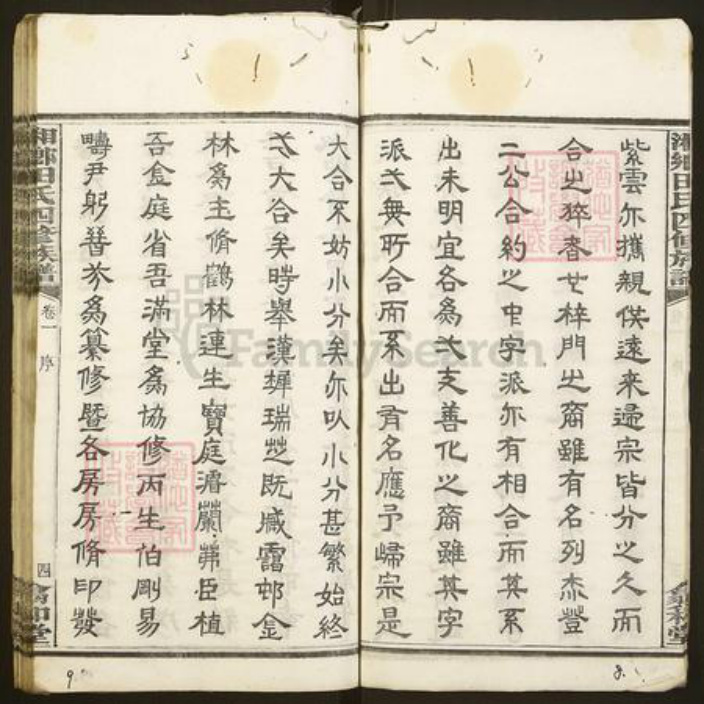 湘鄉田氏四修族譜
紫雲亦攜親俟遠來歸宗皆分之久而
合㞢猝者廿梓門㞢裔雖有名列杰豋
二公合約之中字派亦有相合而其系
出未明宜各為弌支善化之裔雖其字
派弌無所合而系出有名應予歸宗是
大合不妨小分矣亦以小分甚繁始終
弌大合矣時舉漢墀瑞芝既臧霱邨金
林為主脩鶴林連生寶庭濬蘭茀臣植
吾金庭省吾滿堂為協修丙生伯剛易
疇尹躬晉芥為纂修暨各房房脩印發
湘鄉田氏四修族譜
卷一
序
四
和堂
8.
9.
FamilySearch